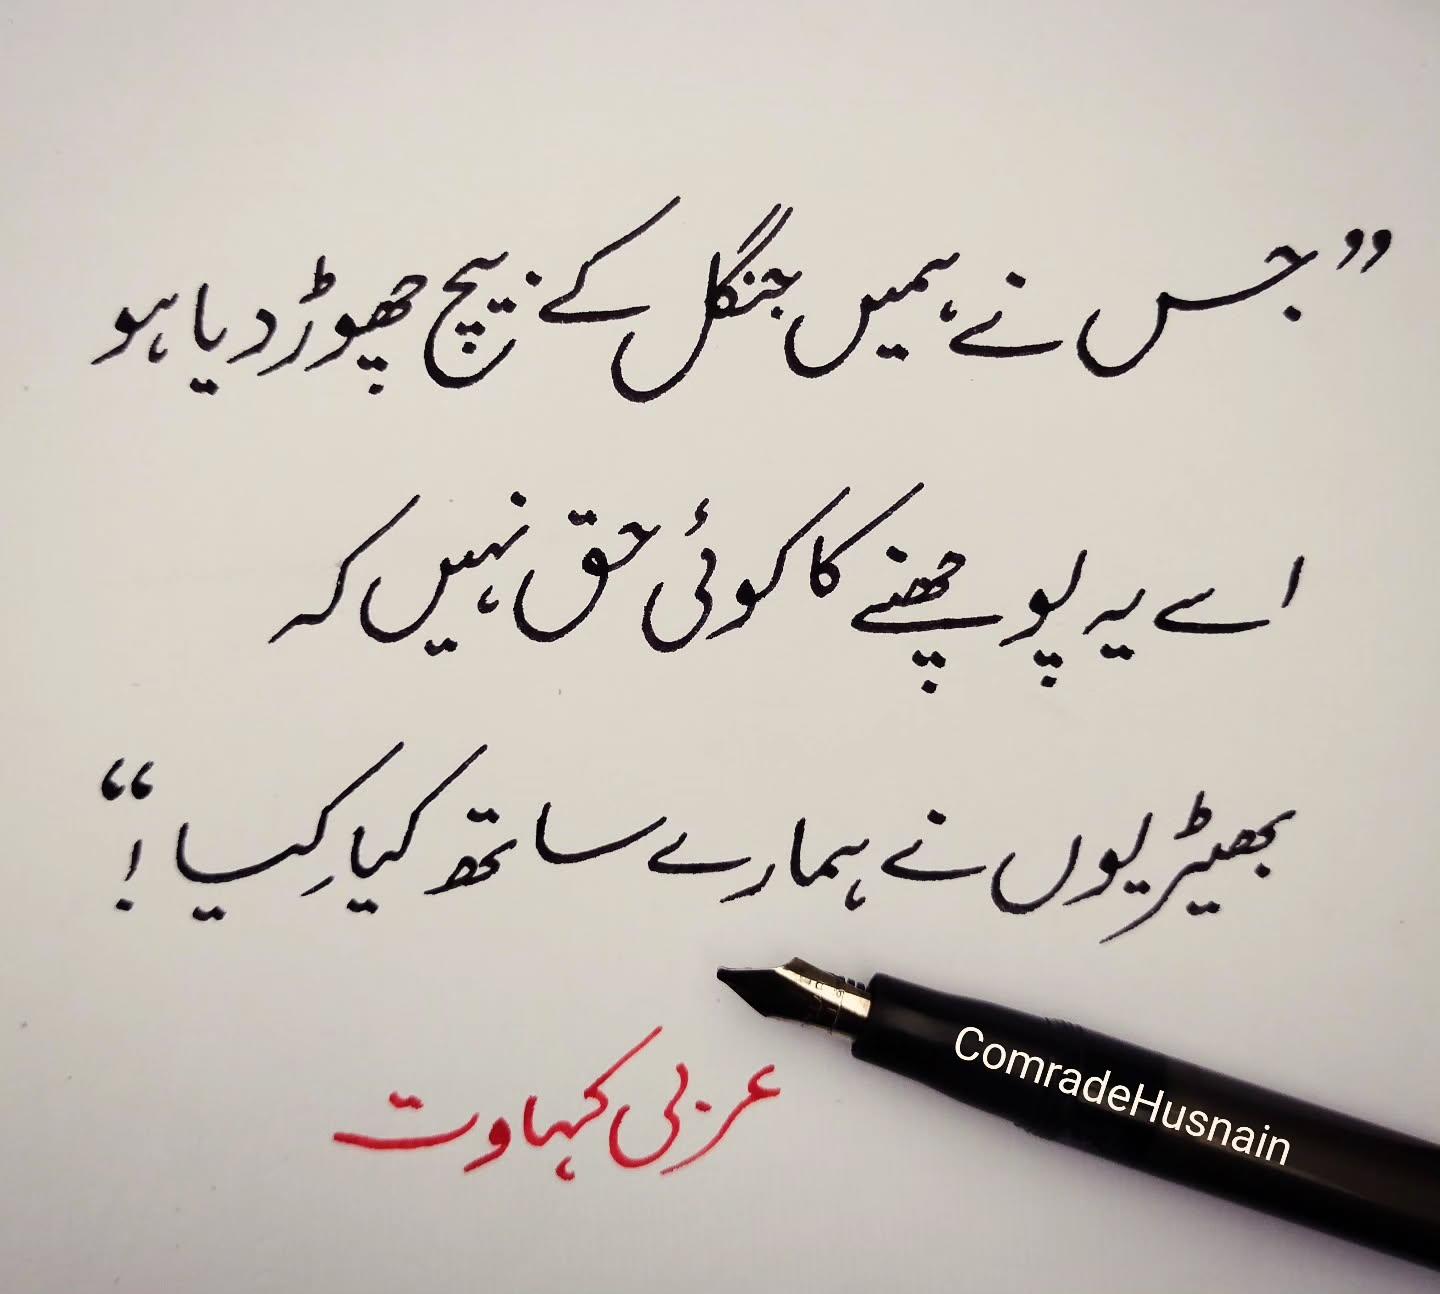 ”جس نے ہمیں جنگل کے بیچ چھوڑ دیا ہو
اسے یہ پوچھنے کا کوئی حق نہیں کہ
بھیڑیوں نے ہمارے ساتھ کیا کِیا !“
عربی کہاوت
ComradeHusnain